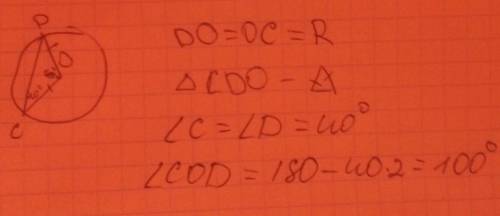 D
O
40°
C
DO=OC=R
△CDO – р/б △
∠C=∠D=40°
∠COD=180–40·2=100°